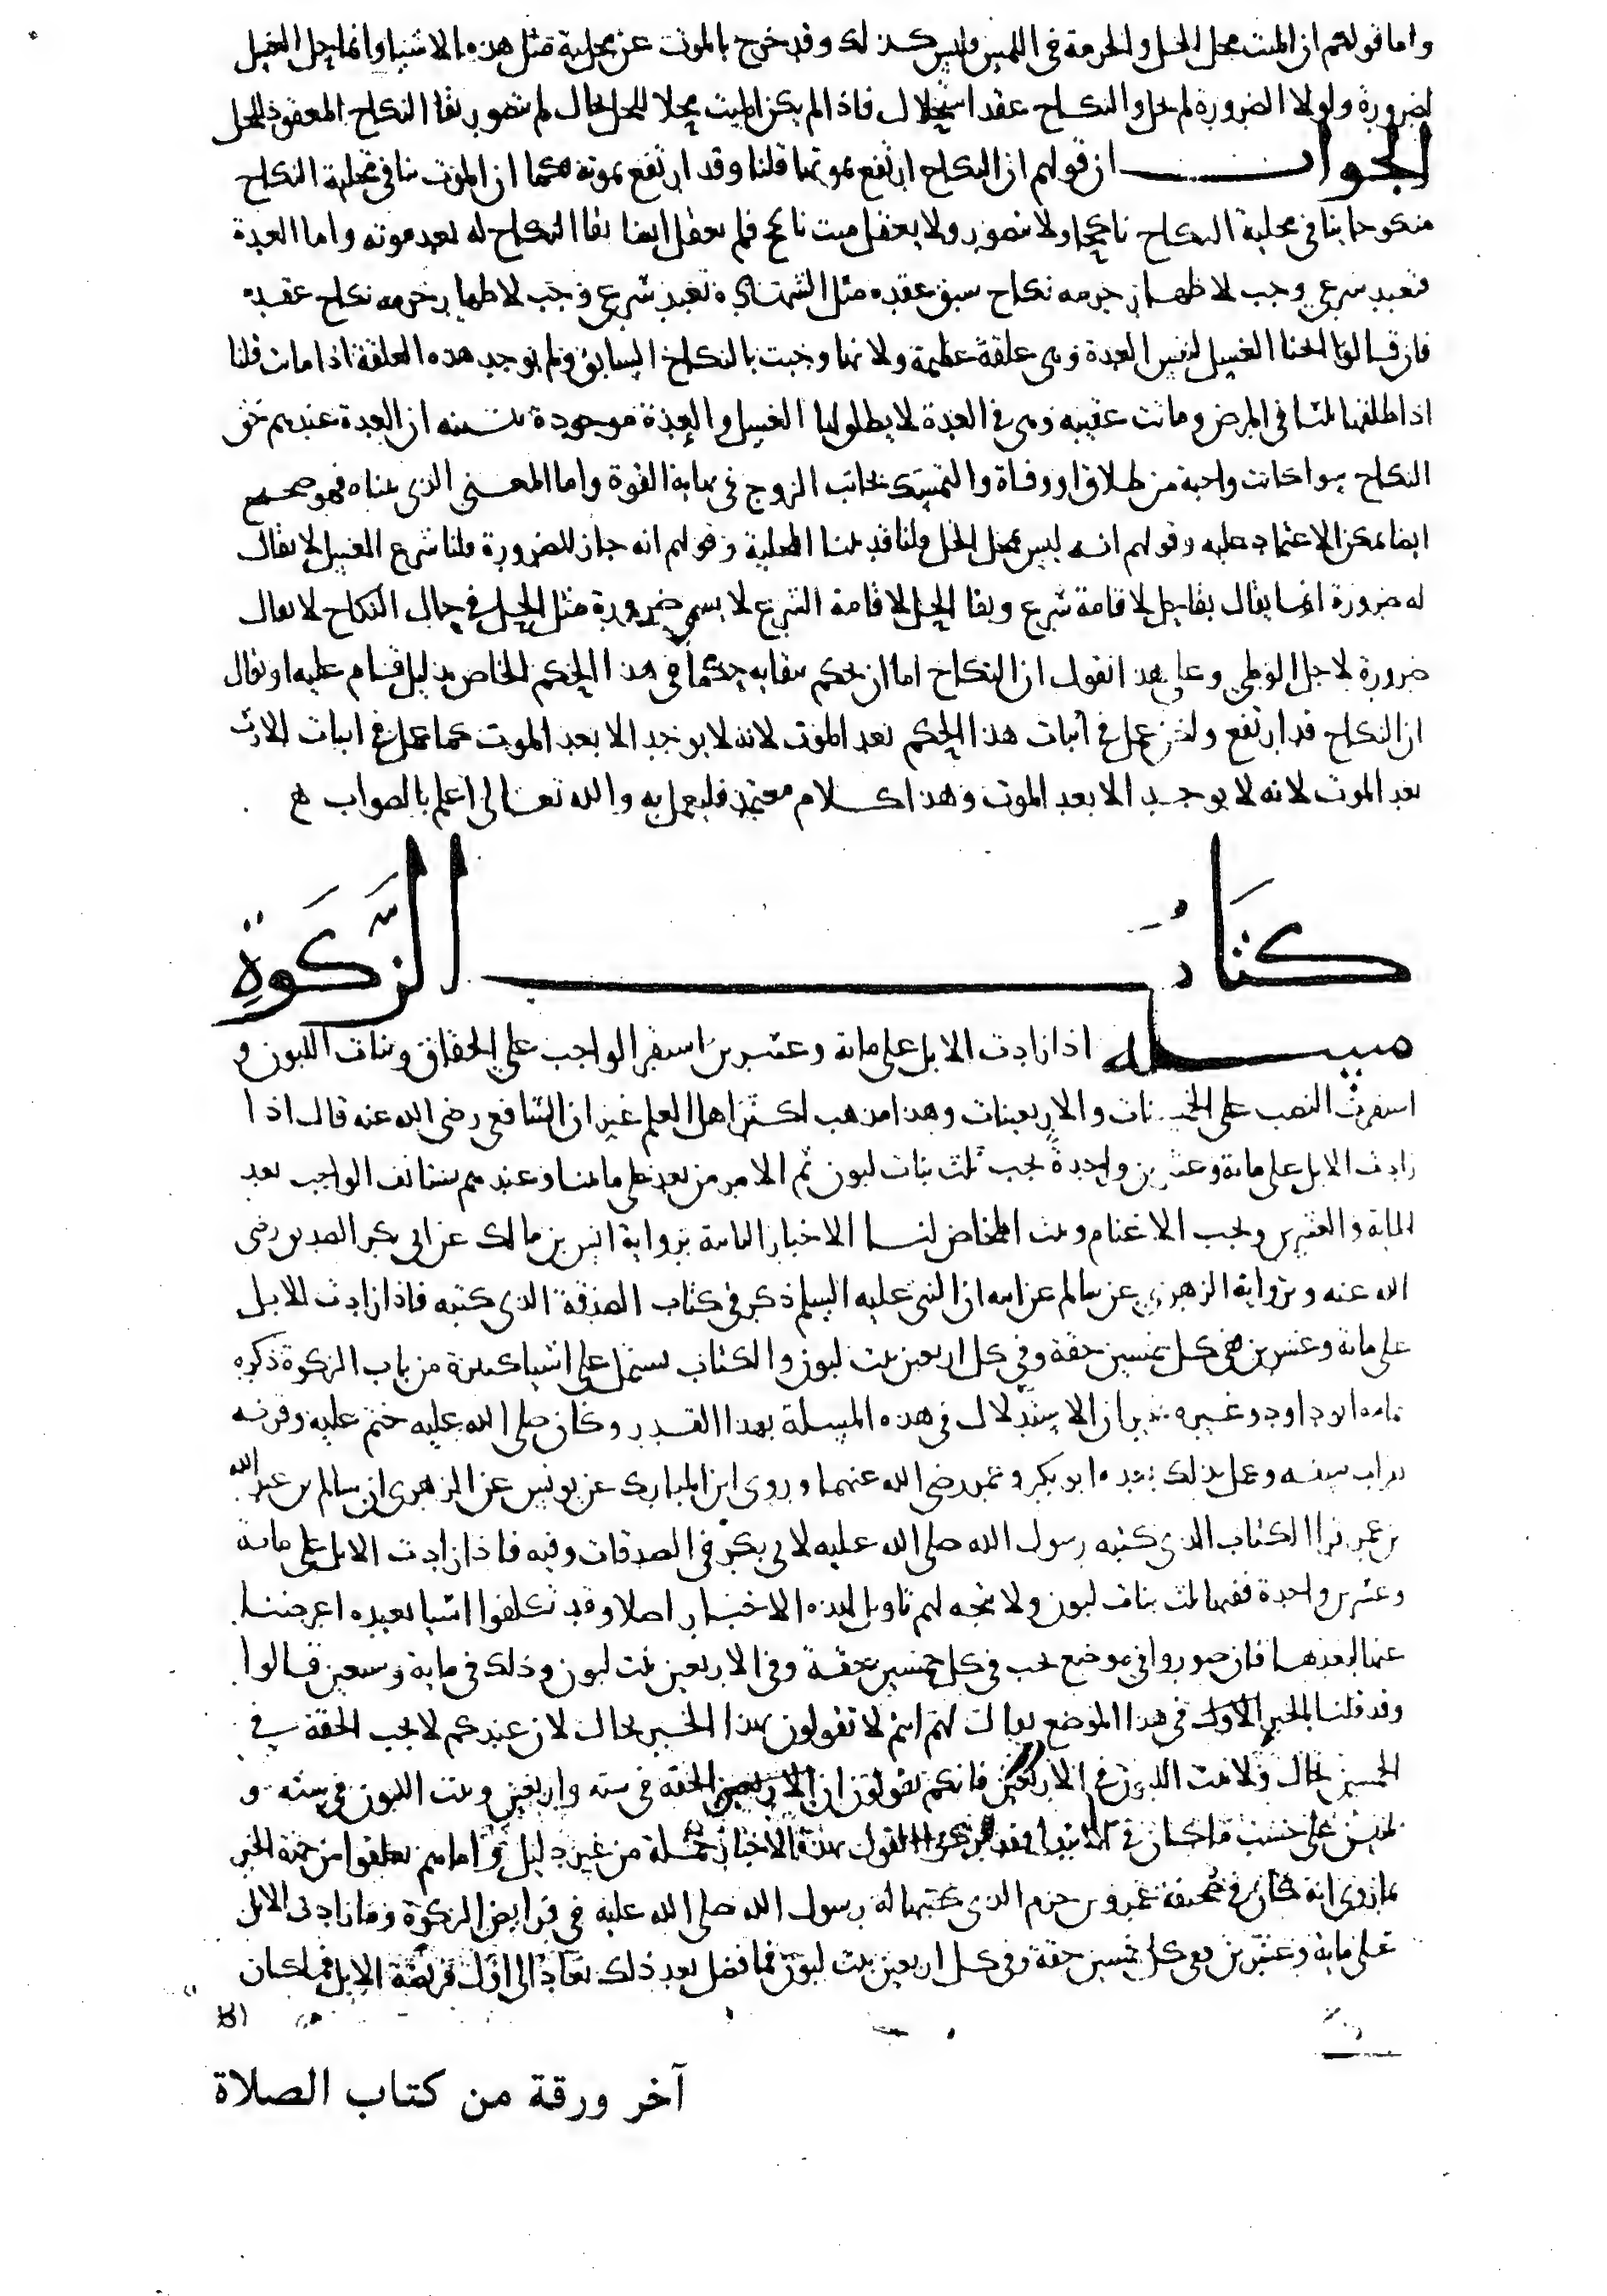 واما قولهم ان الميت محل الحل والحرمة في اللمس وليس كذلك وقد خرج بالموت عن محلية مثل هذه الاشيا وانما يحل الغسل
لضرورة ولولا الضرورة لم يحل والنكاح عقد استحلال فاذا لم يكن الميت محلا للحل بحال لم يتصور بقا النكاح المعقود للحل
الجواب ان قولهم ان النكاح ارتفع بموتها قلنا وقد ارتفع بموته كما ان الموت ينافي محلية النكاح
منكوحا ينافي محلية النكاح ناكحا ولا يتصور ولا يعقل ميت ناكح فلم يعقل ايضا بقا النكاح له بعد موته واما العدة
فتعبد شرعي وجب لاظهار حرمة نكاح سبق عقده مثل الشهادة تعبد شرعي وجب لاظهار حرمه نكاح عقده
فان قالوا الحنا الغسل لنفس العدة وهي علقة عظيمة ولانها وجبت بالنكاح السابق ولم يوجد هذه العلقة اذا ماتت قلنا
اذا طلقها ثلثا في المرض وماتت عقيبه وهي في العدة لا يطلق لها الغسل والعدة موجودة ان العدة عندهم حق
النكاح سوا كانت واجبة من طلاق او وفاة والتمسك بجانب الزوج في نهاية القوة واما المعنى الذي بيناه فهو صحيح
ايضا يمكن الاعتماد عليه وقولهم انه ليس بمحل الحل قلنا قد بينا المحلية وقولهم انه جاز للضرورة قلنا شرع الغسل لا يقال
له ضرورة انما يقال بقا حل لاقامة شرع وبقا الحل لاقامة الشرع لا يسمى ضرورة مثل الحل في حال النكاح لا يقال
ضرورة لاجل الوطي وعلى هذا نقول ان النكاح اما ان يحكم ببقايه حكما في هذا الحكم الخاص بدليل قام عليه او نقال
ان النكاح قد ارتفع ولكن عمل في اثبات هذا الحكم بعد الموت لانه لا يوجد الا بعد الموت كما عمل في اثبات الارث
بعد الموت لانه لا يوجد الا بعد الموت وهذا كلام معتمد فليعمل به والله تعالى اعلم بالصواب
كتاب الزكوة
مسله اذا زادت الابل على مائة وعشرين استقر الواجب على الحقاق وبنات اللبون و
استقرت النصب على الخمسينات والاربعينات وهذا مذهب اكثر اهل العلم غير ان الشافعي رضي الله عنه قال اذا
زادت الابل على مائة وعشرين واحدة يجب ثلث بنات لبون ثم الامر من بعد على ما بينا وعندهم يستانف الواجب بعد
الماية والعشرين ويجب الاغنام وبنت المخاض لنا الاخبار الثابتة برواية انس بن مالك عن ابي بكر الصديق رضي
الله عنه وبرواية الزهري عن سالم عن ابيه ان النبي عليه السلم ذكر في كتاب الصدقة الذي كتبه فاذا زادت الابل
على مائة وعشرين ففي كل خمسين حقة وفي كل اربعين بنت لبون والكتاب يشتمل على اشيا كثيرة من باب الزكوة ذكره
بتمامه ابو داود وغيره غير ان الاستدلال في هذه المسلة بهذا القدر وكان صلى الله عليه ختم عليه وقرنه
بقراب سيفه وعمل بذلك بعده ابو بكر وعمر رضي الله عنهما وروى ابن المبارك عن يونس عن الزهري ان سالم بن عبد الله
بن عمر اقرا الكتاب الذي كتبه رسول الله صلى الله عليه لابي بكر في الصدقات وفيه فاذا زادت الابل على مائة
وعشرين واحدة ففيها ثلث بنات لبون ولا يتجه لهم تاويل لهذه الاخبار اصلا وقد تكلفوا اشيا بعيده اعرضنا
عنها لبعدها فان صوروا في موضع يجب في كل خمسين حقة وفي الاربعين بنت لبون وذلك في ماية وتسعين قالوا
وقد قلنا بالخبر الاول في هذا الموضع يقال لهم انتم لا تقولون بهذا الخبر بحال لان عندكم لا يجب الحقة في
الخمسين بحال ولا بنت اللبون في الاربعين فانكم تقولون ان الحقة في ستة واربعين وبنت اللبون في ستة و
ثلثين على حسب ما كان في الابتدا فقد تركوا القول بهذه الاخبار جملة من غير دليل واما هم تعلقوا من جهة الخبر
بما روى انه كان في صحيفة عمرو بن حزم الذي كتبها له رسول الله صلى الله عليه في فرايض الزكوة وما زاد في الابل
على ماية وعشرين ففي كل خمسين حقة وفي كل اربعين بنت لبون فما فضل بعد ذلك يعاد الى اول فريضة الابل فما كان
آخر ورقة من كتاب الصلاة